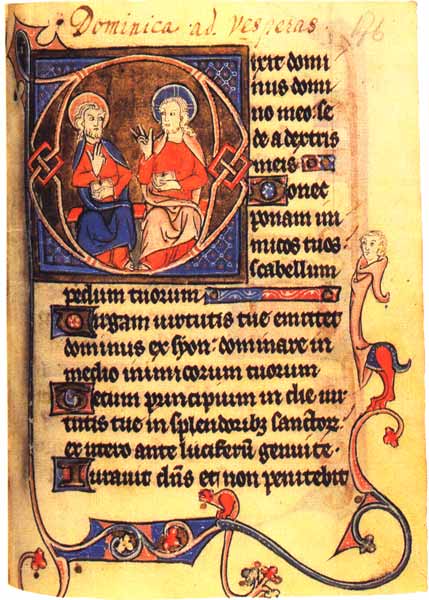 Dominica ad vesperas
Dixit domi
nus domi
no meo. se
de a dextris
meis
Donec
ponam ini
micos tuos
scabellum
pedum tuorum
Uirgam uirtutis tue emittet
dominus ex syon. dominare in
medio inimicorum tuorum
Tecum principium in die uir
tutis tue in splendoribꝫ sanctoꝝ
ex utero ante luciferū genui te.
Iurauit dn̄s et non penitebit